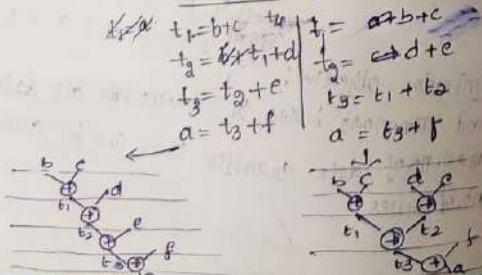 t₁=b+c
t₂=t₁+d
t₃=t₂+e
a=t₃+f
t₁= b+c
t₂= d+e
t₃= t₁+t₂
a = t₃+f
b c
+ d
t₁
+ e
t₂
+ f
t₃
+
b c d e
+ +
t₁ t₂
+ f
t₃ +
a